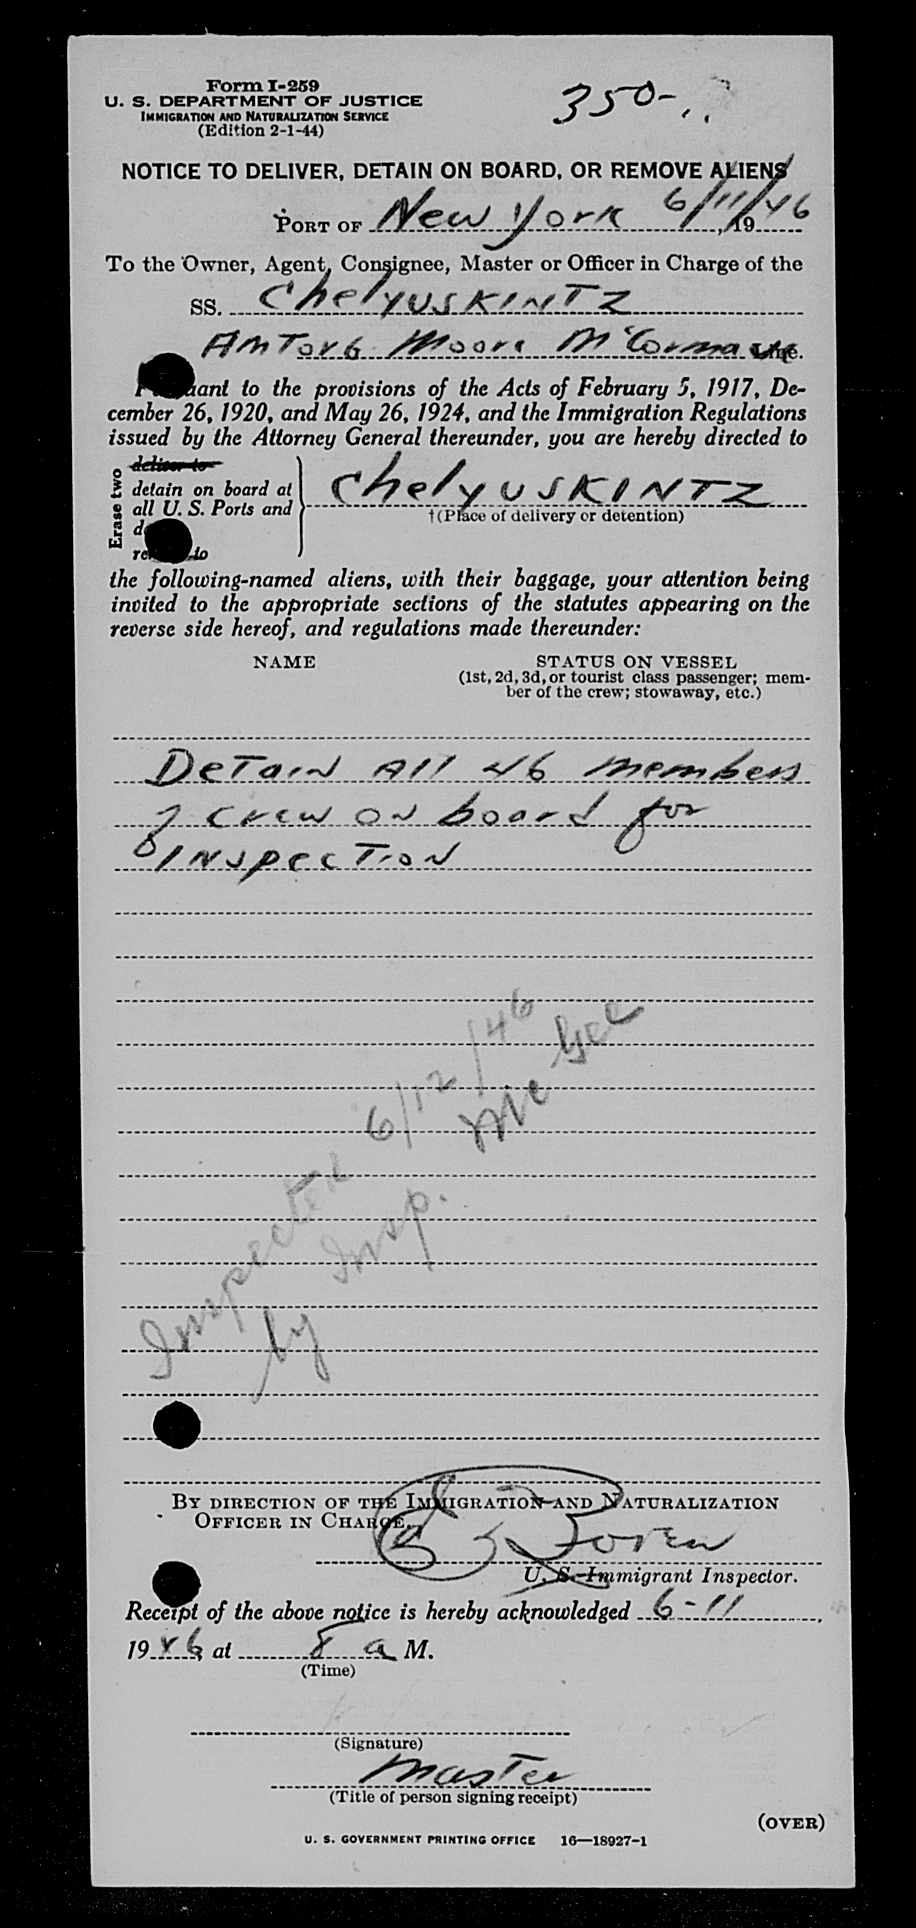 Form I-259
U. S. DEPARTMENT OF JUSTICE
IMMIGRATION AND NATURALIZATION SERVICE
(Edition 2-1-44)
350-
NOTICE TO DELIVER, DETAIN ON BOARD, OR REMOVE ALIENS
PORT OF New York 6/11/46, 19
To the Owner, Agent, Consignee, Master or Officer in Charge of the
SS. Chelyuskintz
Amtorg Moore McCormack Line.
Pursuant to the provisions of the Acts of February 5, 1917, De-
cember 26, 1920, and May 26, 1924, and the Immigration Regulations
issued by the Attorney General thereunder, you are hereby directed to
Erase two
deliver to
detain on board at
all U. S. Ports and
to
Chelyuskintz
†(Place of delivery or detention)
the following-named aliens, with their baggage, your attention being
invited to the appropriate sections of the statutes appearing on the
reverse side hereof, and regulations made thereunder:
NAME STATUS ON VESSEL
(1st, 2d, 3d, or tourist class passenger; mem-
ber of the crew; stowaway, etc.)
Detain All 46 members
of crew on board for
inspection
Inspected 6/12/46
by Insp. McGee
BY DIRECTION OF THE IMMIGRATION AND NATURALIZATION
OFFICER IN CHARGE.
U. S. Immigrant Inspector.
Receipt of the above notice is hereby acknowledged 6-11,
1946 at 8 a M.
(Time)
(Signature)
Master
(Title of person signing receipt)
(OVER)
U. S. GOVERNMENT PRINTING OFFICE 16—18927-1